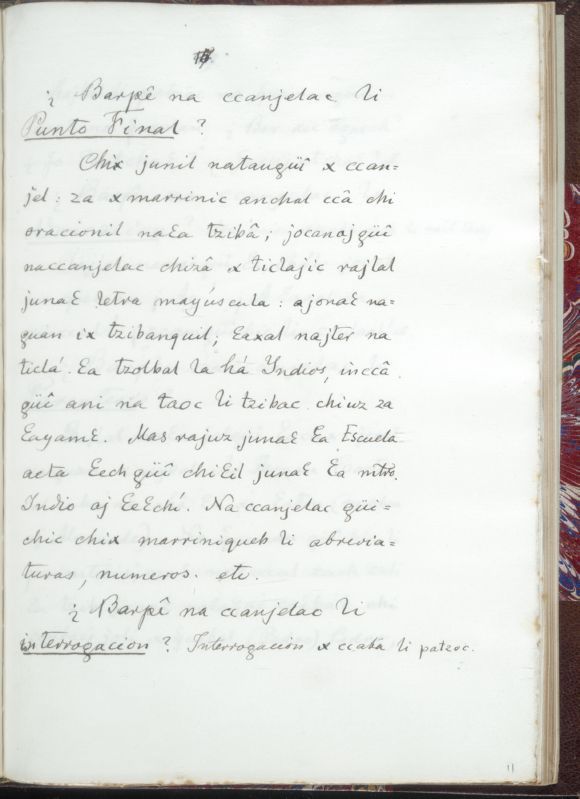 ¿ Barpê na ccanjelac li
Punto Final ?
Chix junil nataugüî x ccan=
jel : za x marrinic anchal ccâ chi
oracionil naƐa tzibâ ; jocanajgüî
naccanjelac chizâ x ticlajic rajlal
junaƐ letra mayúscula : ajonaƐ na=
guan ix tzibanquil, Ɛaxal najter na
ticlá. Ɛa tzolbal la há Yndios, inccâ
güî ani na taoc li tzibac chiuz za
ƐayamƐ. Mas rajuz junaƐ Ɛa Escuela
aeta Ɛech güî chiƐil junaƐ Ɛa mtro.
Indio aj ƐeƐchí. Na ccanjelac güi=
chic chix marriniqueb li abrevia=
turas, numeros. etc.
¿ Barpê na ccanjelac li
interrogacion ? Interrogacion x ccaba li patzoc.
11